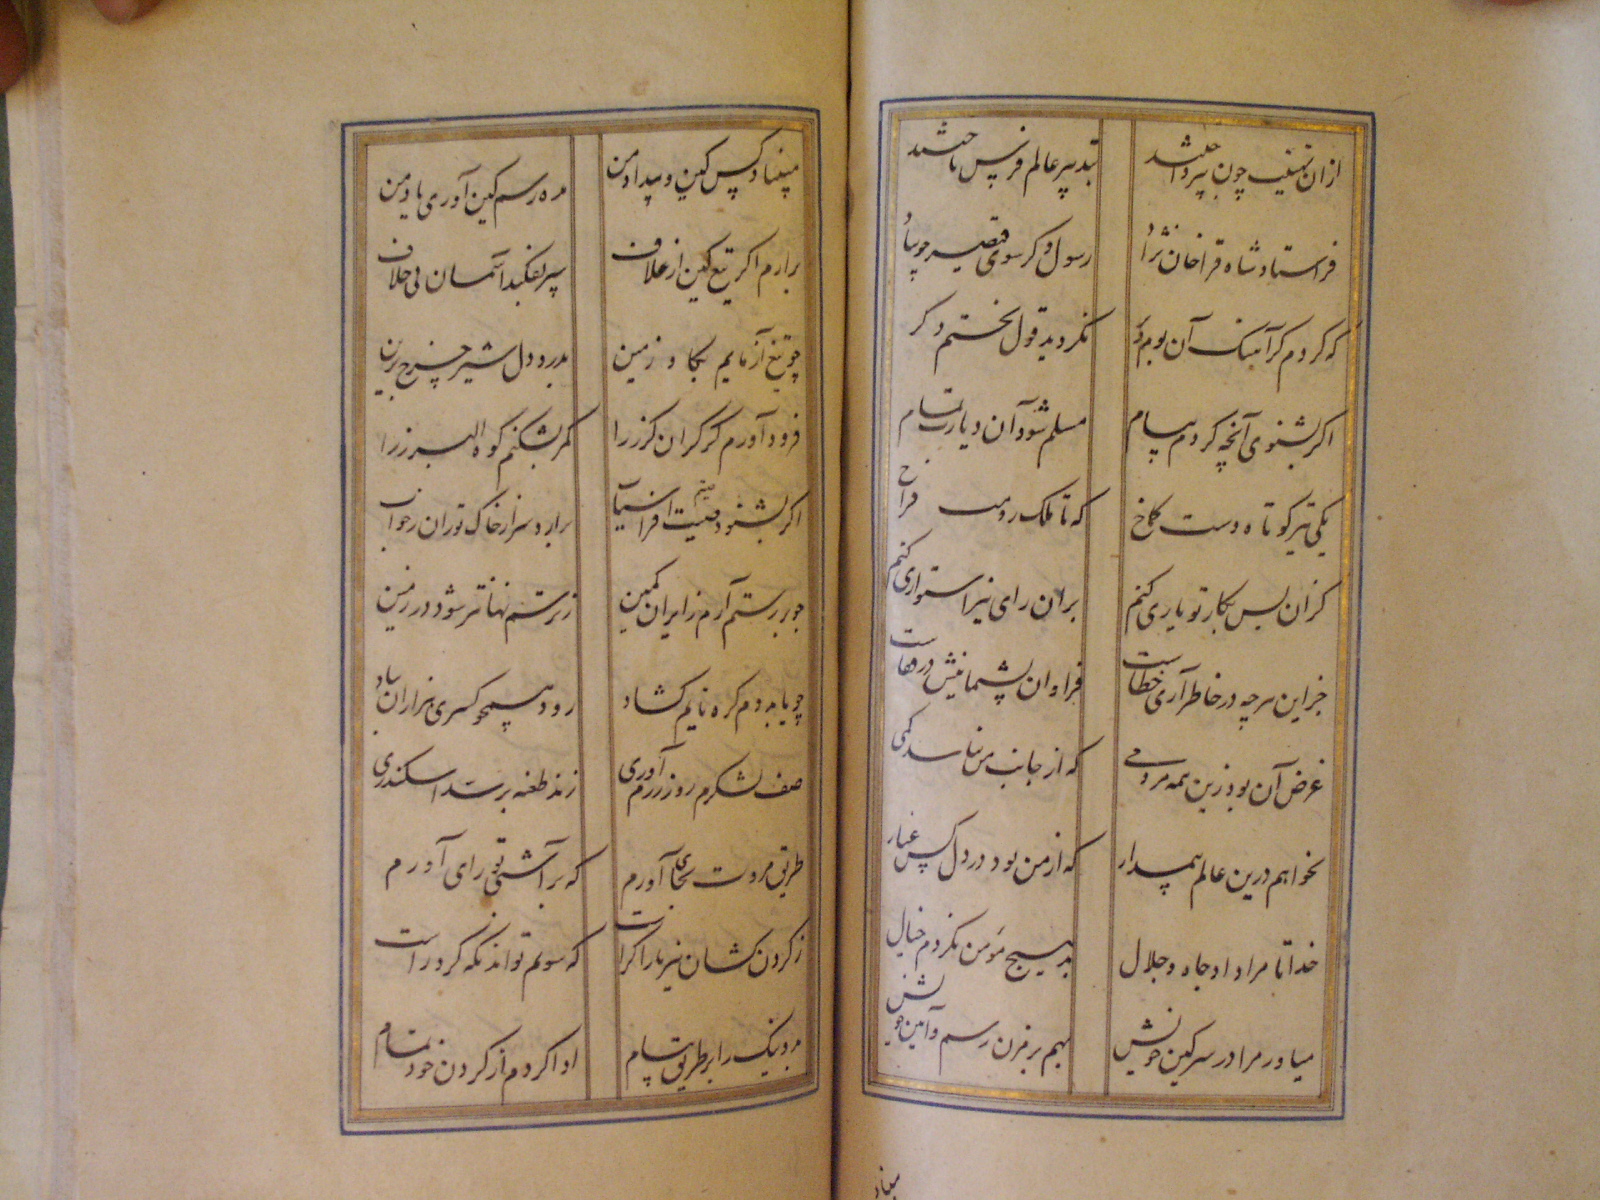 ازان چون بپرداختند تدبیر عالم فرس تاختند
فرستاد شاه قراخان نژاد رسول دگر سوی قیصر چو باد
که کردم کر آهنگ آن بوم و بر نگردید قول نخستم دگر
اگر بشنوی آنچه کردم پیام مسلم شود آن دیارت تمام
یکی تیر کوتاه دست کاخ که تا ملک رومت فراخ
کزان پس بکار تو یاری کنم بران رای نیز استواری کنم
جز این هرچه در خاطر آری خطاست فراوان پشیمانیش در قفاست
غرض آن بود زین همه مردمی که از جانب من نباشد کمی
نخواهم درین عالم پیدار که از من بود در دل کس غبار
خدا تا مرا داد جاه و جلال بد هیچ مؤمن نکردم خیال
میاور مرا در سر کین خویش بهم بر مزن رسم و آیین خویش
میفتاد
میفتاد کس کین و بیداد من مده رسم کین آوری یاد من
برارم اگر تیغ کین از غلاف سپر بفکند آسمان بی خلاف
چو تیغ آزمایم بگاو زمین بدرد دل شیر چرخ برین
فرود آورم گر گران گرز را کمر بشکنم کوه البرز را
اگر بشنود صیت من افراسیاب برارد سر از خاک توران خراب
چو بر رستم آرم ز ایران کمین ز ترسم نهانتر شود در زمین
چو پا بر دم کره نایم گشاد رود همچو کسری هزاران بباد
صف لشکرم روز رزم آوری زند طعنه بر سد اسکندری
طریق مروت بجای آورم که بر آشتی تو رای آورم
ز گردن کشان نیز یارا کراست که سویم تواند نگه کرد راست
بد و نیک را بر طریق پیام ادا کردم از گردن خود تمام